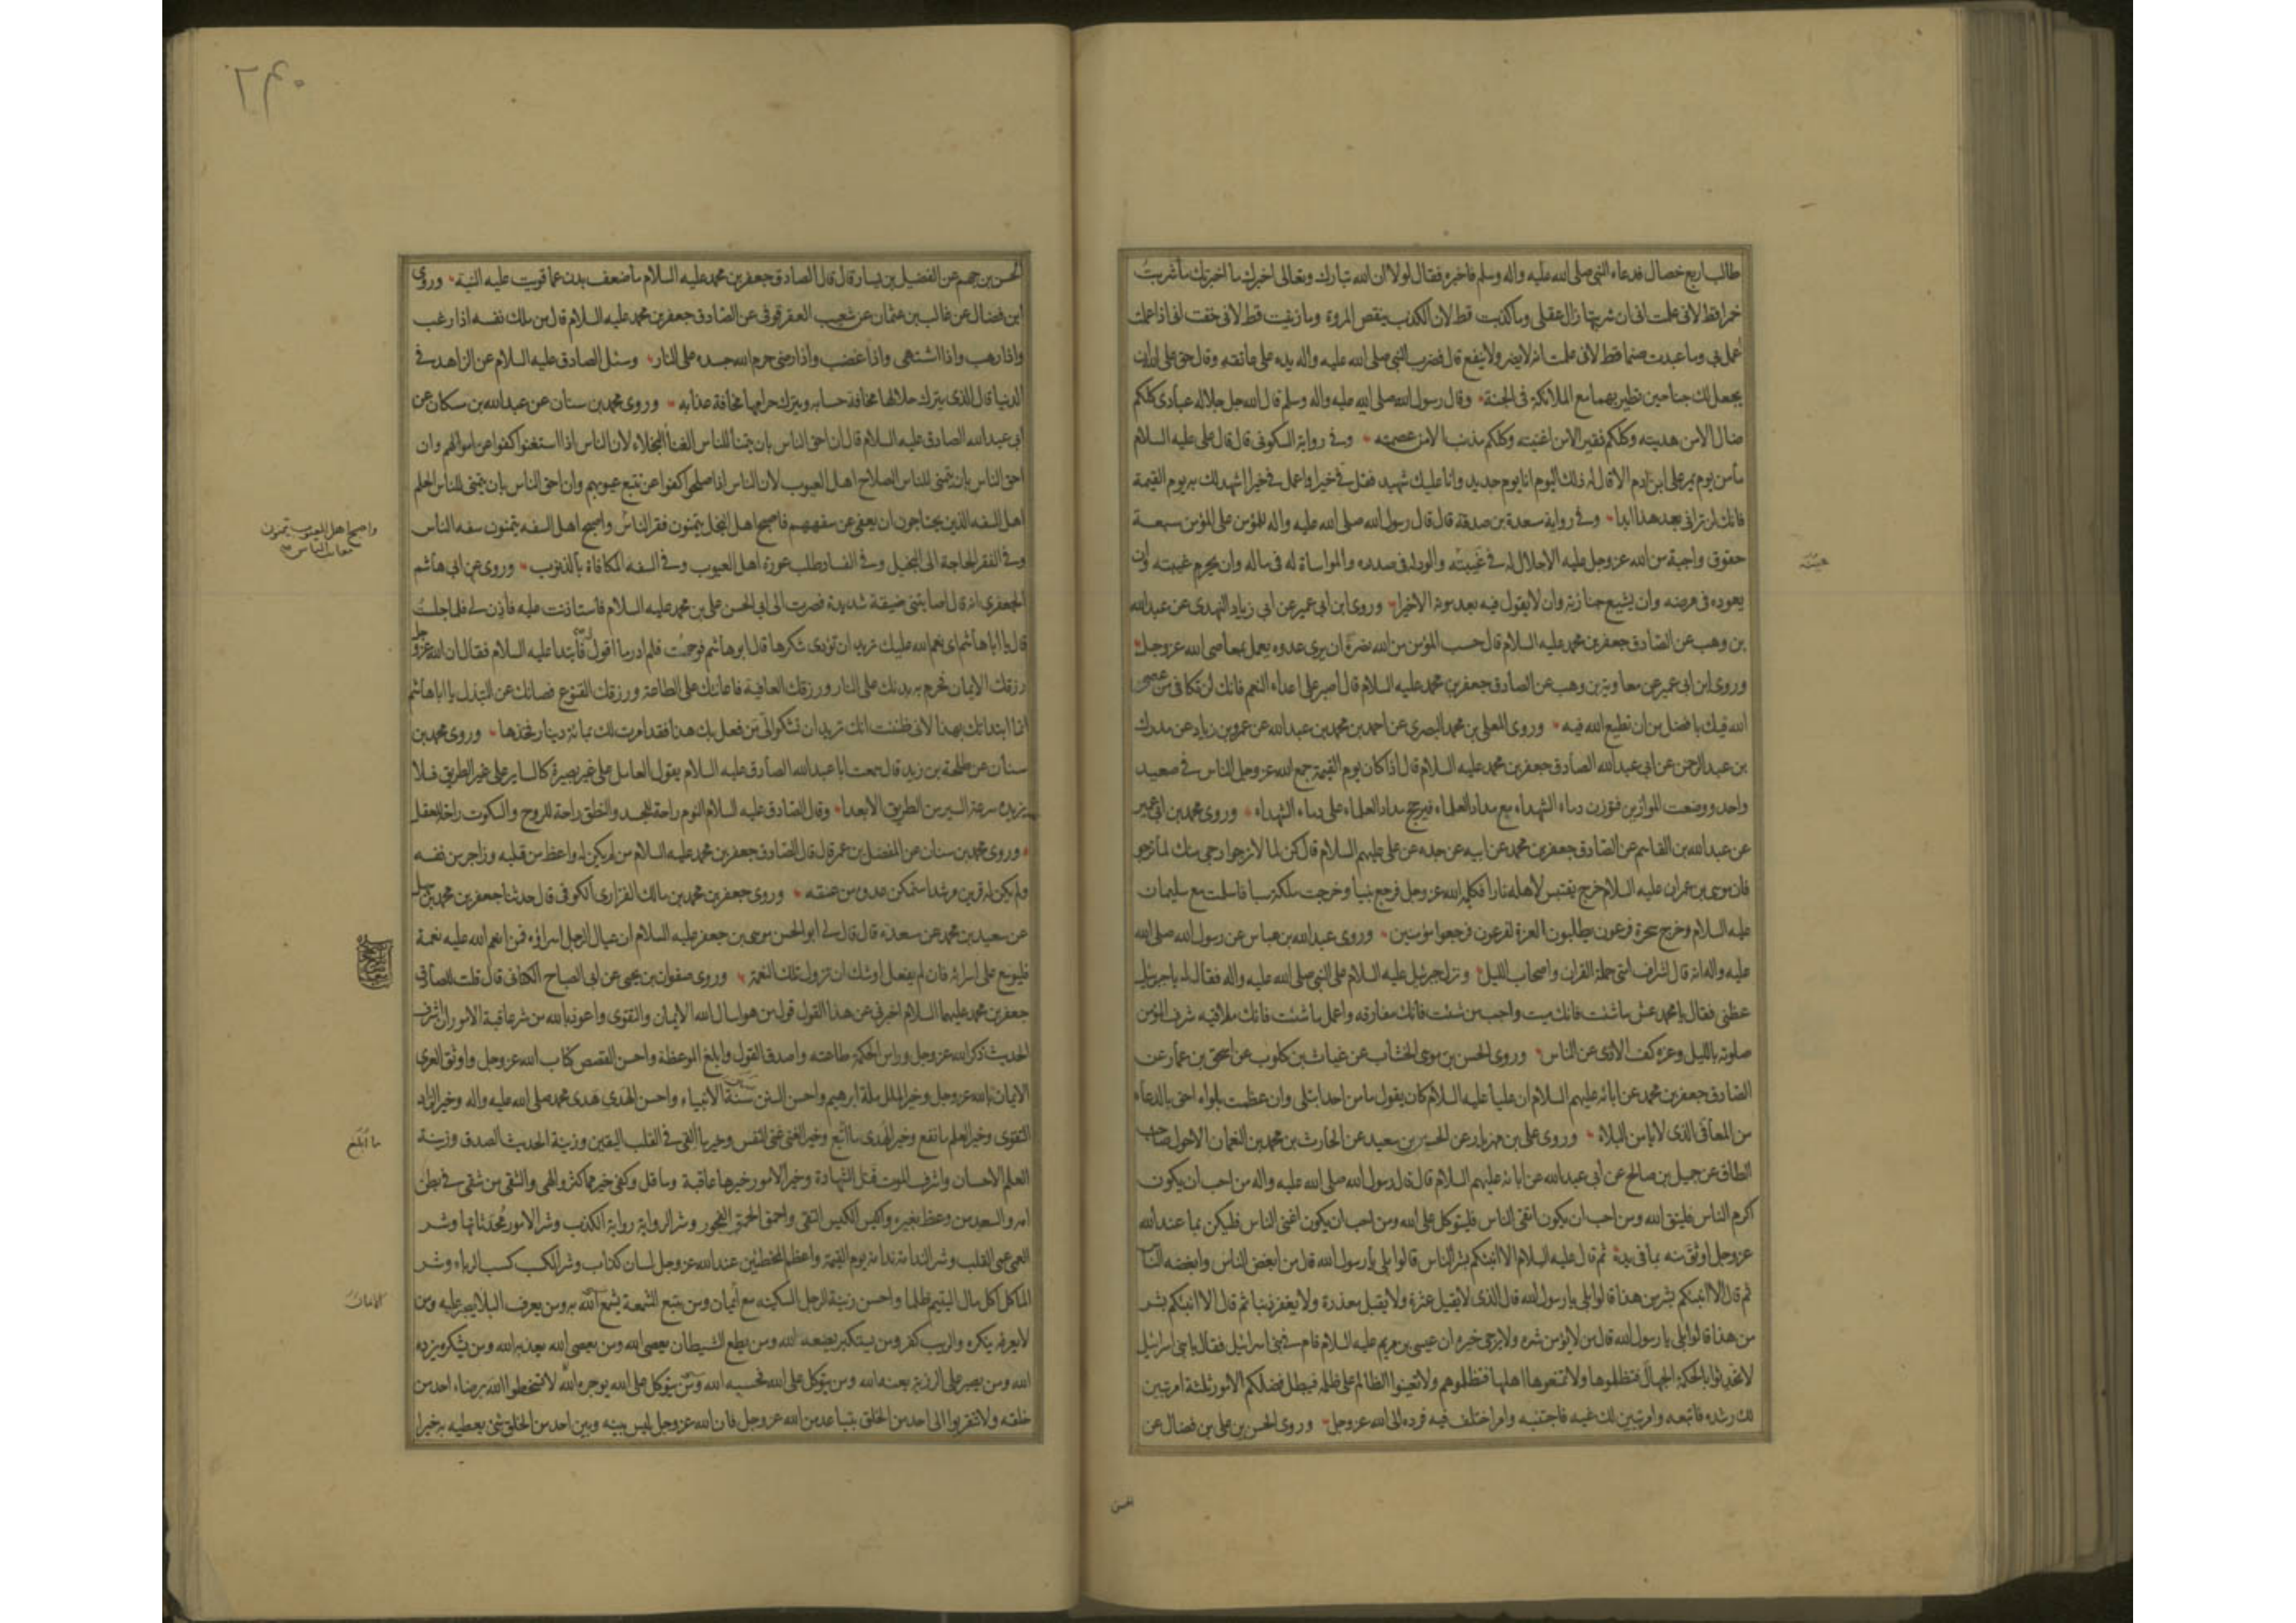 طالب اربع خصال فدعاه النبى صلى الله عليه واله وسلم فاخبره فقال لولا ان الله تبارك وتعالى اخبرك ما اخبرتك ما شربت
خمرا قط لانى علمت انى ان شربتها زال عقلى وما كذبت قط لان الكذب ينقص المروة وما زنيت قط لانى خفت انى اذا عملت
عمل بى وما عبدت صنما قط لانى علمت انه لا يضر ولا ينفع قال فضرب النبى صلى الله عليه واله يده على عاتقه وقال حق على الله ان
يجعل لك جناحين تطير بهما مع الملائكة فى الجنة وقال رسول الله صلى الله عليه واله وسلم قال الله جل جلاله عبادى كلكم
ضال الا من هديته وكلكم فقير الا من اغنيته وكلكم مذنب الا من عصمته وفى رواية السكونى قال قال على عليه السلام
ما من يوم يمر على ابن ادم الا قال له ذلك اليوم انا يوم جديد وانا عليك شهيد فقل فى خيرا واعمل فى خيرا اشهد لك به يوم القيمة
فانك لن ترانى بعد هذا ابدا وفى رواية مسعدة بن صدقة قال قال رسول الله صلى الله عليه واله للمؤمن على المؤمن سبعة
حقوق واجبة من الله عز وجل عليه الاجلال له فى غيبته والود له فى صدره والمواساة له فى ماله وان يحرم غيبته وان
يعوده فى مرضه وان يشيع جنازته وان لا يقول فيه بعد موته الا خيرا وروى ابن ابى عمير عن ابى زياد النهدى عن عبد الله
بن وهب عن الصادق جعفر بن محمد عليه السلام قال حسب المؤمن من الله نصرة ان يرى عدوه يعمل بمعاصى الله عز وجل
وروى ابن ابى عمير عن معاوية بن وهب عن الصادق جعفر بن محمد عليه السلام قال اصبر على اعداء النعم فانك لن تكافى من عصى
الله فيك بافضل من ان تطيع الله فيه وروى المعلى بن محمد البصرى عن احمد بن محمد بن عبد الله عن عمرو بن زياد عن مدرك
بن عبد الرحمن عن ابى عبد الله الصادق جعفر بن محمد عليه السلام قال اذا كان يوم القيمة جمع الله عز وجل الناس فى صعيد
واحد ووضعت الموازين فتوزن دماء الشهداء مع مداد العلماء فيرجح مداد العلماء على دماء الشهداء وروى محمد بن ابى عمير
عن عبد الله بن القاسم عن الصادق جعفر بن محمد عن ابيه عن جده عن على عليهم السلام قال كن لما لا ترجو ارجى منك لما ترجو
فان موسى بن عمران عليه السلام خرج يقتبس لاهله نارا فكلمه الله عز وجل فرجع نبيا وخرجت ملكة سبا فاسلمت مع سليمان
عليه السلام وخرج سحرة فرعون يطلبون العزة لفرعون فرجعوا مؤمنين وروى عبد الله بن عباس عن رسول الله صلى الله
عليه واله انه قال اشراف امتى حملة القران واصحاب الليل ونزل جبرئيل عليه السلام على النبى صلى الله عليه واله فقال له يا جبرئيل
عظنى فقال يا محمد عش ما شئت فانك ميت واحبب من شئت فانك مفارقه واعمل ما شئت فانك ملاقيه شرف المؤمن
صلوته بالليل وعزه كف الاذى عن الناس وروى الحسن بن موسى الخشاب عن غياث بن كلوب عن اسحق بن عمار عن
الصادق جعفر بن محمد عن ابائه عليهم السلام ان عليا عليه السلام كان يقول ما من احد ابتلى وان عظمت بلواه احق بالدعاء
من المعافى الذى لا يامن البلاء وروى على بن مهزيار عن الحسين بن سعيد عن الحارث بن محمد بن النعمان الاحول صاحب
الطاق عن جميل بن صالح عن ابى عبد الله عن ابائه عليهم السلام قال قال رسول الله صلى الله عليه واله من احب ان يكون
اكرم الناس فليتق الله ومن احب ان يكون اتقى الناس فليتوكل على الله ومن احب ان يكون اغنى الناس فليكن بما عند الله
عز وجل اوثق منه بما فى يده ثم قال عليه السلام الا انبئكم بشر الناس قالوا بلى يا رسول الله قال من ابغض الناس وابغضه الناس
ثم قال الا انبئكم بشر من هذا قالوا بلى يا رسول الله قال الذى لا يقيل عثرة ولا يقبل معذرة ولا يغفر ذنبا ثم قال الا انبئكم بشر
من هذا قالوا بلى يا رسول الله قال من لا يؤمن شره ولا يرجى خيره ان عيسى بن مريم عليه السلام قام فى بنى اسرائيل فقال يا بنى اسرائيل
لا تحدثوا بالحكمة الجهال فتظلموها ولا تمنعوها اهلها فتظلموهم ولا تعينوا الظالم على ظلمه فيبطل فضلكم الامور ثلثة امر تبين
لك رشده فاتبعه وامر تبين لك غيه فاجتنبه وامر اختلف فيه فرده الى الله عز وجل وروى الحسن بن على بن فضال عن
الحسن بن جهم عن الفضيل بن يسار قال قال الصادق جعفر بن محمد عليه السلام ما ضعف بدن عما قويت عليه النية وروى
ابن فضال عن غالب بن عثمان عن شعيب العقرقوفى عن الصادق جعفر بن محمد عليه السلام قال من ملك نفسه اذا رغب
واذا رهب واذا اشتهى واذا غضب واذا رضى حرم الله جسده على النار وسئل الصادق عليه السلام عن الزاهد فى
الدنيا قال الذى يترك حلالها مخافة حسابه ويترك حرامها مخافة عذابه وروى محمد بن سنان عن عبد الله بن سكان عن
ابى عبد الله الصادق عليه السلام قال ان احق الناس بان يتمنا للناس الغنا البخلاء لان الناس اذا استغنوا كفوا عن اموالهم وان
احق الناس بان يتمنى للناس الصلاح اهل العيوب لان الناس اذا صلحوا كفوا عن تتبع عيوبهم وان احق الناس بان يتمنى للناس الحلم
اهل السفه الذين يحتاجون ان يعفى عن سفههم فاصبح اهل البخل يتمنون فقر الناس واصبح اهل السفه يتمنون سفه الناس
واصبح اهل العيوب يتمنون
معاب الناس
وفى الفقر الحاجة الى البخيل وفى الفساد طلب عورة اهل العيوب وفى السفه المكافاة بالذنوب وروى عن ابى هاشم
الجعفرى انه قال اصابتنى ضيقة شديدة فصرت الى ابى الحسن على بن محمد عليه السلام فاستاذنت عليه فاذن لى فلما جلست
قال يا ابا هاشم اى نعم الله عليك تريد ان تؤدى شكرها قال ابو هاشم فوجمت فلم ادر ما اقول له فابتدا عليه السلام فقال ان الله عز وجل
رزقك الايمان فحرم به بدنك على النار ورزقك العافية فاعانك على الطاعة ورزقك القنوع فصانك عن التبذل يا ابا هاشم
انما ابتداتك بهذا لانى ظننت انك تريد ان تشكو الى من فعل بك هذا فقد امرت لك بمائة دينار فخذها وروى محمد بن
سنان عن طلحة بن زيد قال سمعت ابا عبد الله الصادق عليه السلام يقول العامل على غير بصيرة كالساير على غير الطريق فلا
يزيده سرعة السير من الطريق الا بعدا وقال الصادق عليه السلام النوم راحة للجسد والنطق راحة للروح والسكوت راحة للعقل
وروى محمد بن سنان عن المفضل بن عمر قال قال الصادق جعفر بن محمد عليه السلام من لم يكن له واعظ من قلبه وزاجر من نفسه
ولم يكن له قرين مرشد استمكن عدوه من عنقه وروى جعفر بن محمد بن مالك الفزارى الكوفى قال حدثنا جعفر بن محمد بن سهل
عن سعيد بن محمد عن مسعدة قال قال لى ابو الحسن موسى بن جعفر عليه السلام ان عيال الرجل اسراؤه فمن انعم الله عليه نعمة
فليوسع على اسرائه فان لم يفعل اوشك ان تزول تلك النعمة وروى صفوان بن يحيى عن ابى الصباح الكنانى قال قلت للصادق
جعفر بن محمد عليهما السلام اخبرنى عن هذا القول قول من هو اسال الله الايمان والتقوى واعوذ بالله من شر عاقبة الامور ان اشرف
الحديث ذكر الله عز وجل وراس الحكمة طاعته واصدق القول وابلغ الموعظة واحسن القصص كتاب الله عز وجل واوثق العرى
الايمان بالله عز وجل وخير الملل ملة ابرهيم واحسن السنن سنة الانبياء واحسن الهدى هدى محمد صلى الله عليه واله وخير الزاد
التقوى وخير العلم ما نفع وخير الهدى ما اتبع وخير الغنى غنى النفس وخير ما القى فى القلب اليقين وزينة الحديث الصدق وزينة
العلم الاحسان واشرف الموت قتل الشهادة وخير الامور خيرها عاقبة وما قل وكفى خير مما كثر والهى والشقى من شقى فى بطن
امه والسعيد من وعظ بغيره واكيس الكيس التقى واحمق الحمق الفجور وشر الرواية رواية الكذب وشر الامور محدثاتها وشر
العمى عمى القلب وشر الندامة ندامة يوم القيمة واعظم المخطئين عند الله عز وجل لسان كذاب وشر الكسب كسب الرباء وشر
الماكل اكل مال اليتيم ظلما واحسن زينة الرجل السكينه مع ايمان ومن يتبع الشمعة يشمع الله به ومن يعرف البلا يصبر عليه ومن
لا يعرفه ينكره والريب كفر ومن يستكبر يضعه الله ومن يطع الشيطان يعصى الله ومن يعصى الله يعذبه الله ومن يشكره يزيده
الله ومن يصبر على الرزية يعنه الله ومن يتوكل على الله فحسبه الله ومن يتوكل على الله يوجره الله لا تسخطوا الله برضاء احد من
خلقه ولا تتقربوا الى احد من الخلق بتباعد من الله عز وجل فان الله عز وجل ليس بينه وبين احد من الخلق شئ يعطيه به خيرا